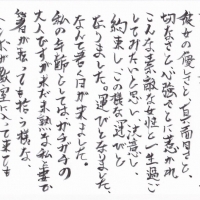 彼女の優しさと、真面目さと、
切なさと心強さに惹かれ
こんな素敵な女性と一生過ご
してみたいと思い、決意し、
約束し、この様な運びと
なりました。運びとなりました、
なんて書く日が来ました。
私の年齢としてはガチガチの
大人ですが、まだ未熟な私は妻で
箸が転っても拾う様な、